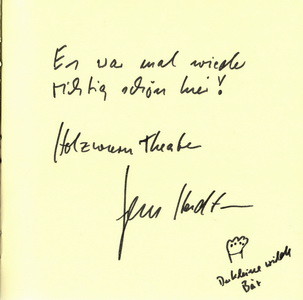 Es war mal wieder
richtig schön hier!
Holzwurm Theater
Jens
Der kleine wilde
Bär